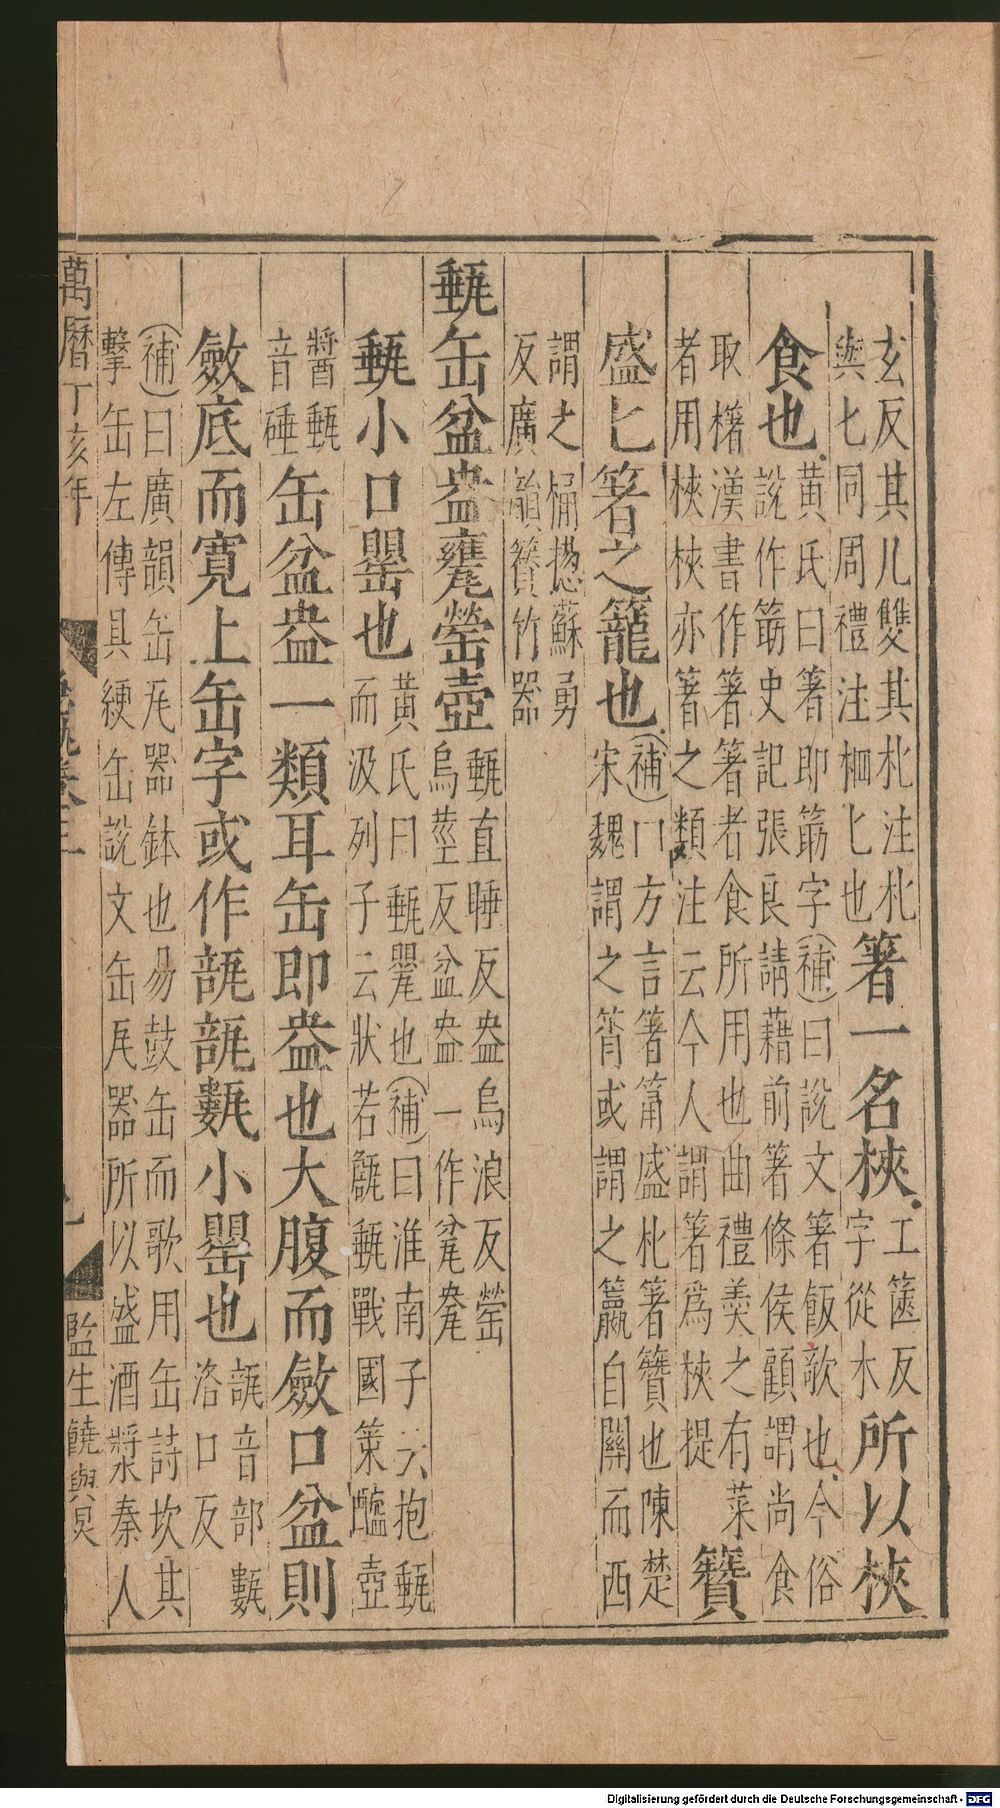 玄反其几雙其朼注朼
與匕同周禮注柶匕也箸一名梜工篋反字從木所以梜
食也黃氏曰箸即筯字(補)曰說文箸飯欹也今俗
說作筯史記張良請藉前箸條侯顧謂尚食
取櫡漢書作箸箸者食所用也曲禮羹之有菜
者用梜梜亦箸之類注云今人謂箸爲梜提籫
盛匕箸之籠也(補)曰方言箸筩盛朼箸籫也陳楚
宋魏謂之筲或謂之籯自關而西
謂之桶㨤蘇勇
反廣韻籫竹器
甀缶盆盎甕罃壺甀直睡反盎烏浪反罃
烏莖反盆盎一作瓫㼜
甀小口罌也黃氏曰甀甖也(補)曰淮南子云抱甀
而汲列子云狀若甔甀戰國策醯壺
醬甀
音硾缶盆盎一類耳缶即盎也大腹而斂口盆則
斂底而寬上缶字或作瓿瓿甊小罌也瓿音部甊
洛口反
(補)曰廣韻缶瓦器鉢也易鼓缶而歌用缶詩坎其
擊缶左傳具綆缶說文缶瓦器所以盛酒漿秦人
萬曆丁亥年
監生饒與
Digitalisierung gefördert durch die Deutsche Forschungsgemeinschaft - DFG